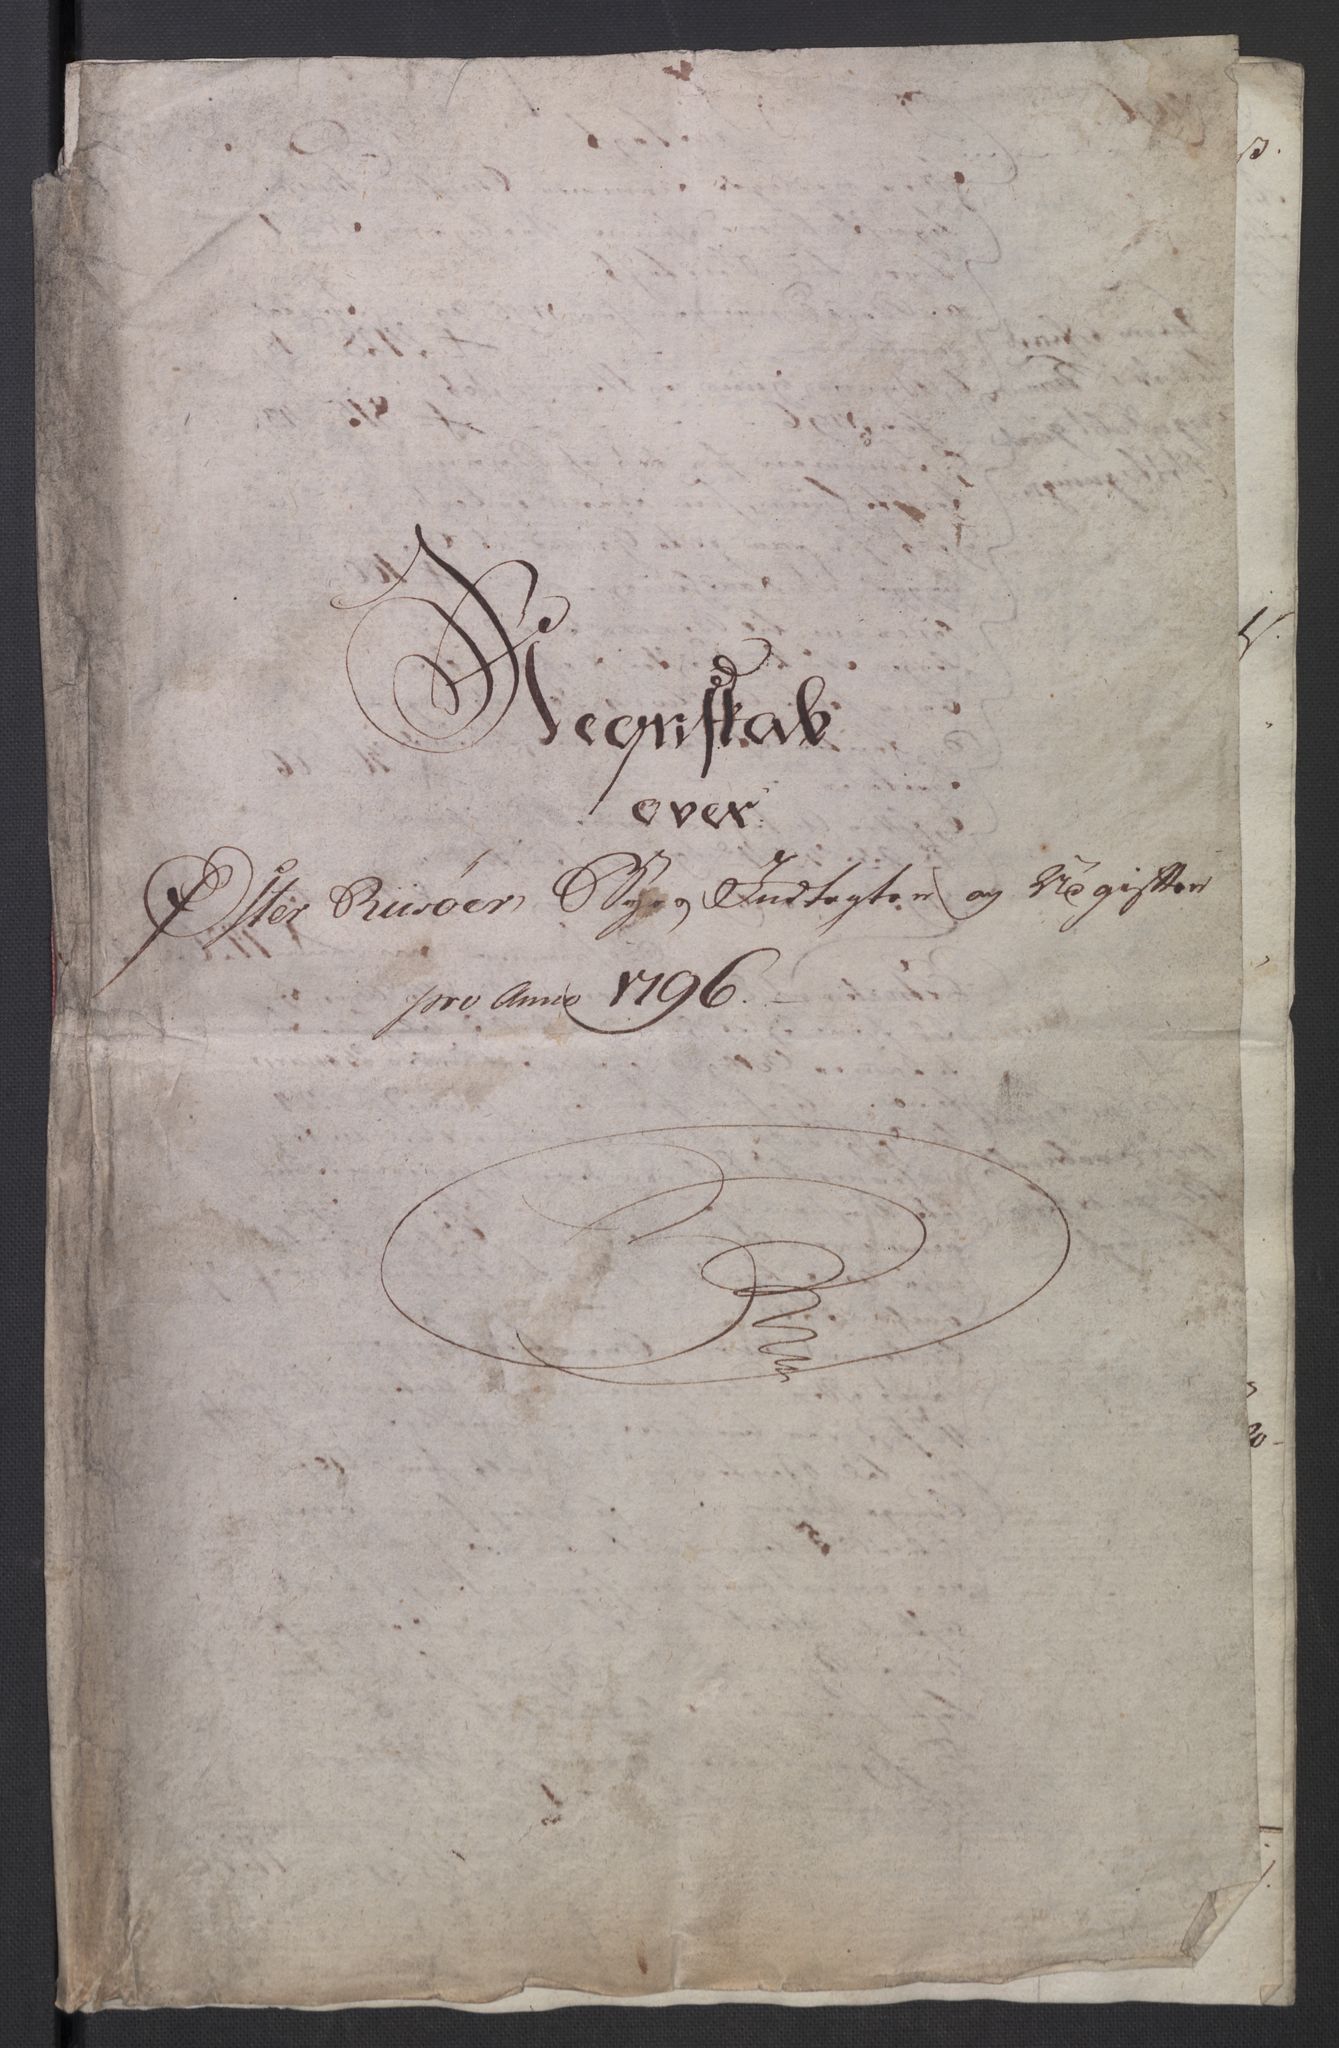 Regnskab
over
Øster Riisöers Byes Indtægter og Udgifter
pro Anno 1796.